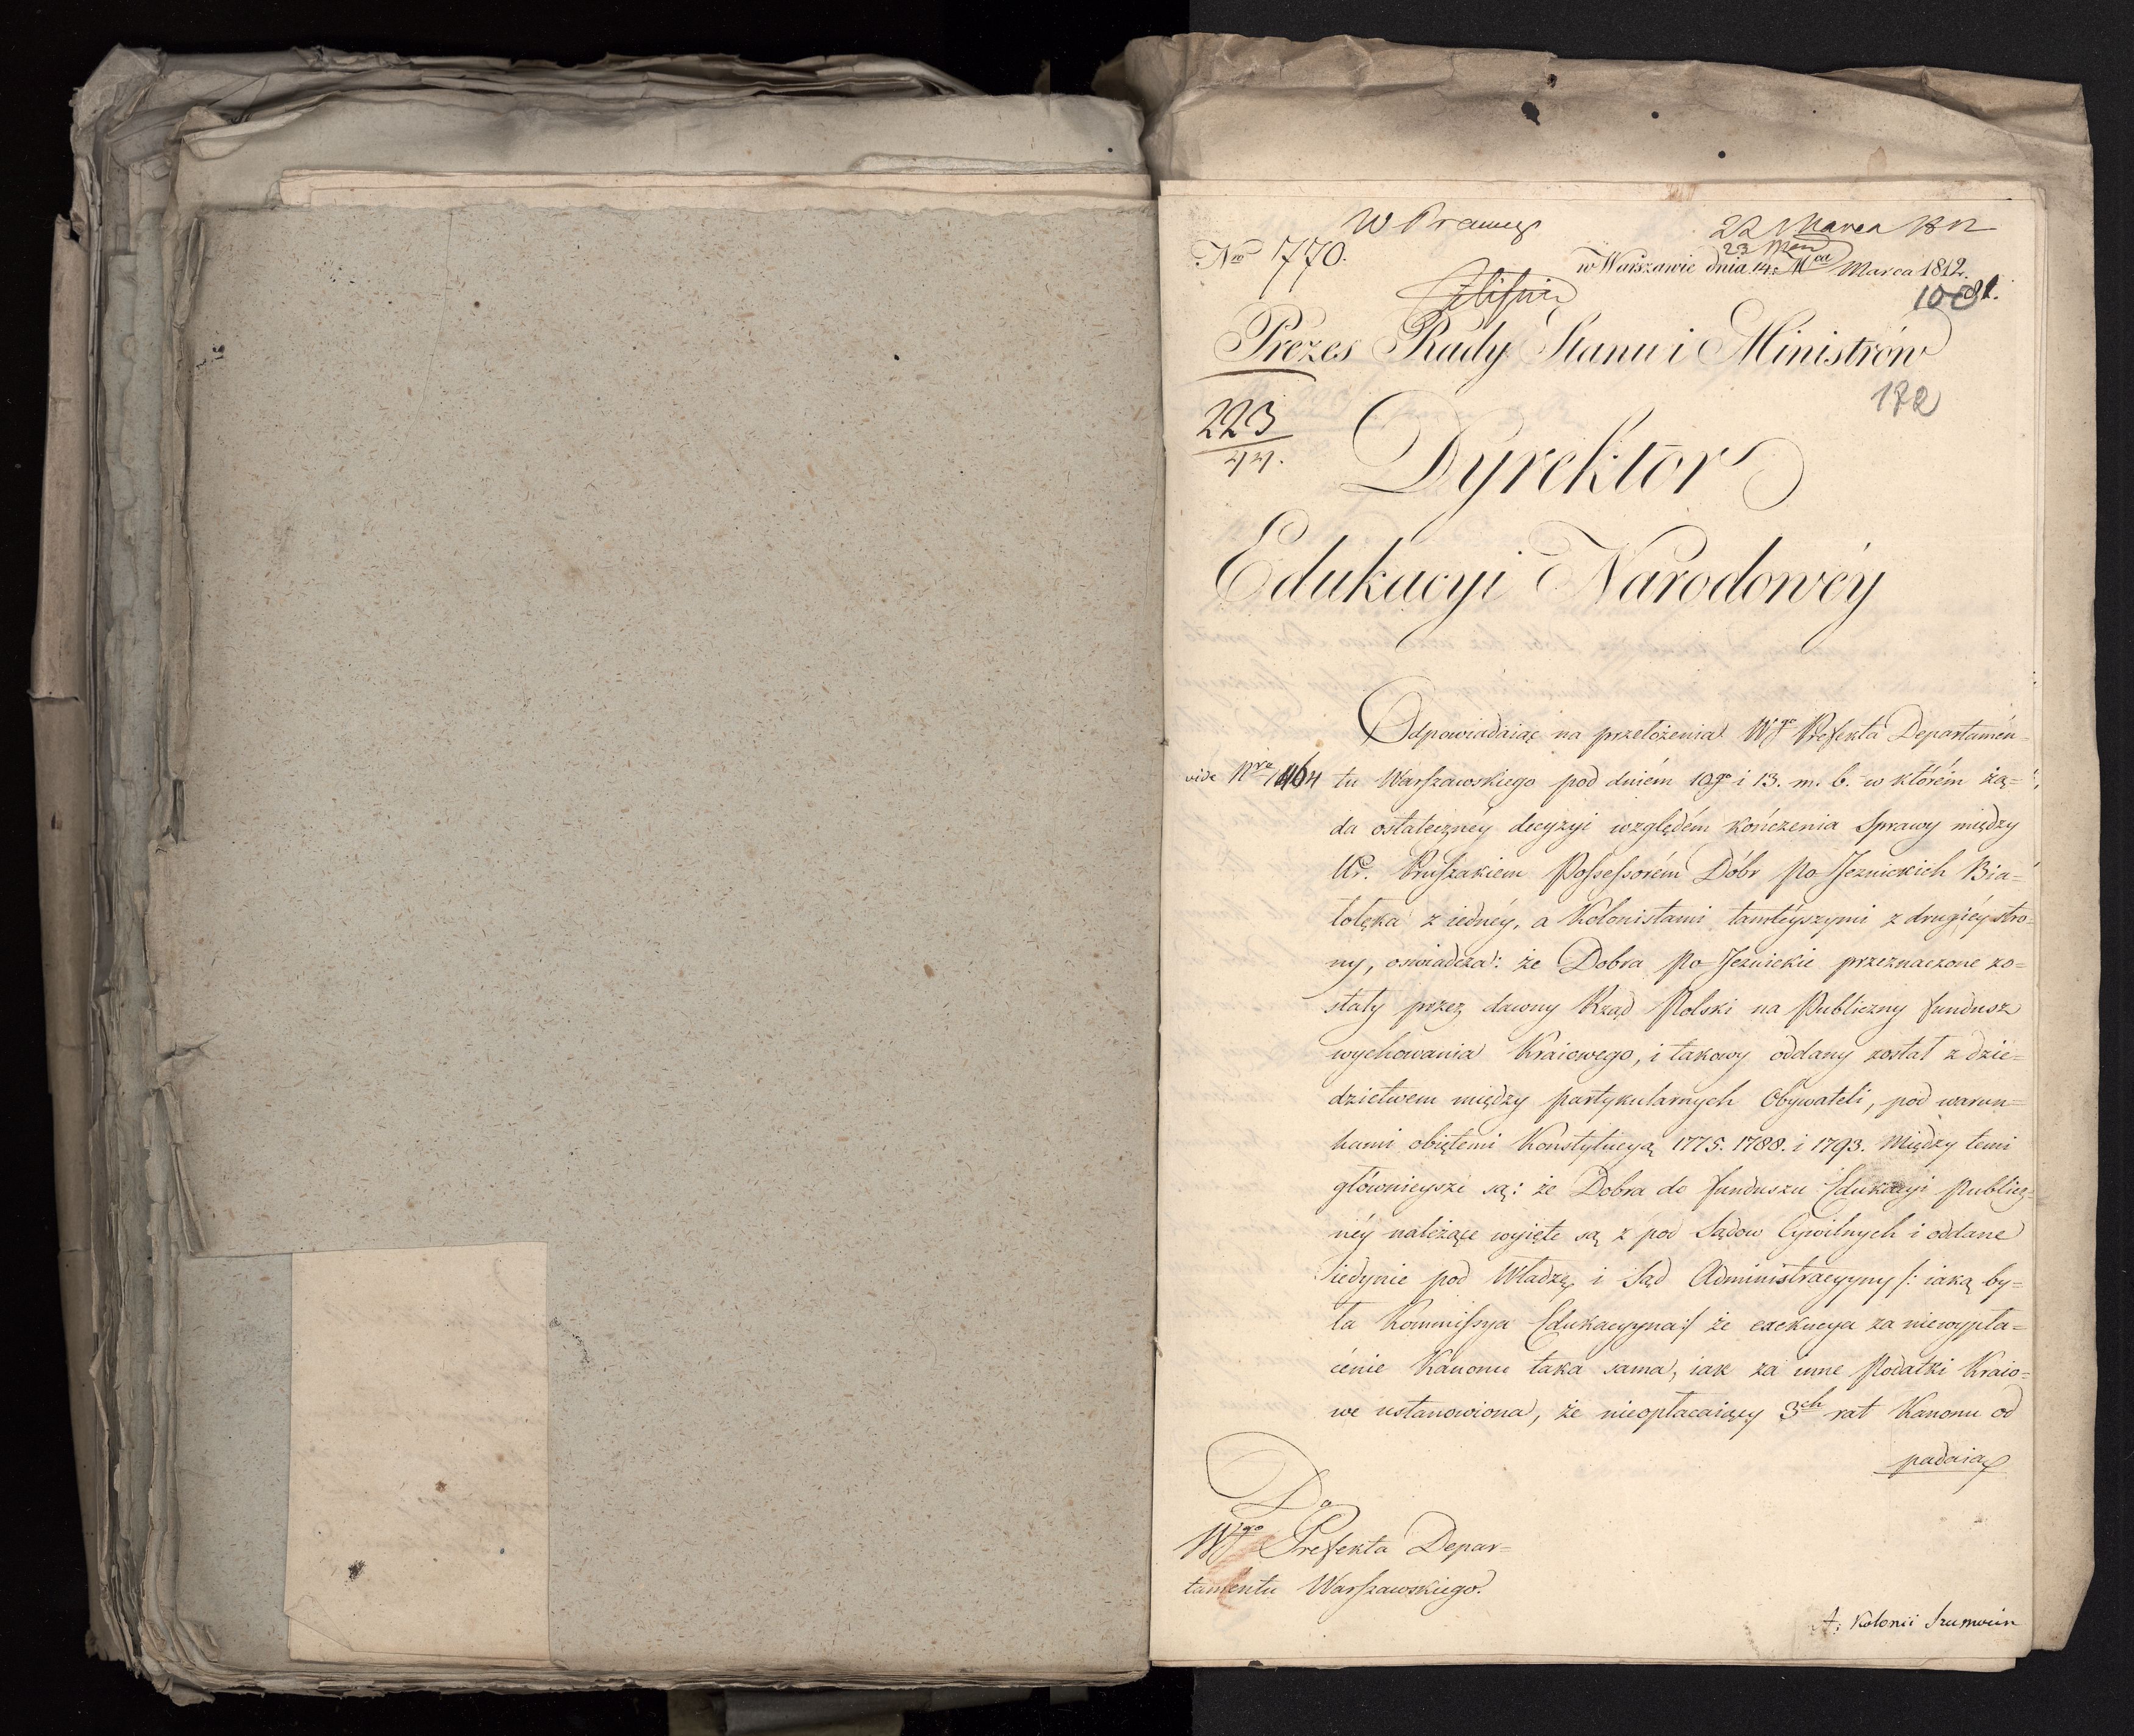 22 Marca 1812
23 Mca
Nro 770.
w Warszawie dnia 14. Mca Marca 1812.
81.
Prezes Rady Stanu i Ministrów
172
223
44.
Dyrektor
Edukacyi Narodowéy
Odpowiadaiąc na przełożenia Wgo Prefekta Departamén-
vide Nro 1464 tu Warszawskiego pod dniém 10go i 13. m. b. w którém żą-
da ostatecznéy decyzyi względém kończenia Sprawy między
Ur. Pruszakiem Possessorém Dóbr Po Jezuickich Bia-
łołęka z iednéy, a Kolonistami tamtéyszymi z drugiéy stro-
ny, oświadcza: że Dobra Po Jezuickie przeznaczone zo-
stały przez dawny Rząd Polski na Publiczny fundusz
wychowania Kraiowego, i takowy oddany został z dzie-
dzictwem między partykularnych Obywateli, pod warun-
kami obiętemi Konstytucyą 1775. 1788. i 1793. Między temi
głównieysze są: że Dobra do funduszu Edukacyi Publicz-
néy należące wyięte są z pod Sądow Cywilnych i oddane
iedynie pod Władzę i Sąd Administracyyny /: iaką by-
ła Kommissya Edukacyyna :/ że exekucya za niewypła-
cenie Kanonu taka sama, iak za inne Podatki Kraio-
we ustanowiona, że nieopłacaiący 3ch rat Kanonu od
padaią
Do
Wgo Prefekta Depar-
tamentu Warszawskiego.
A: Kolonii Szumwin